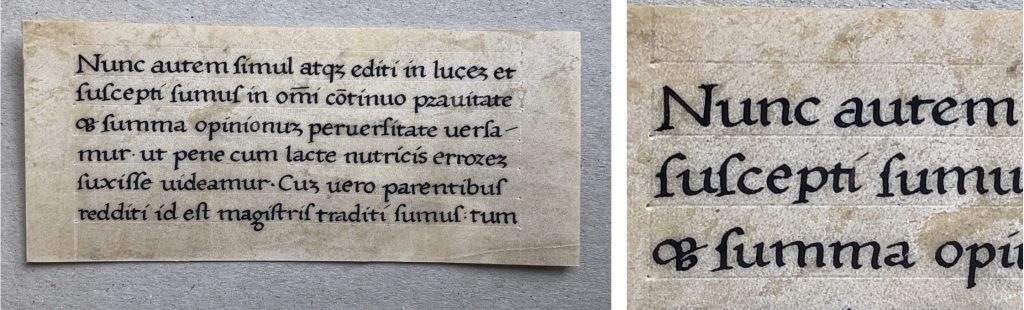 Nunc autem ſimul atqꝫ editi in luceꝫ et
ſuſcepti ſumuſ in om̄i cōtinuo pꝛauitate
& ſumma opinionuꝫ peruerſitate uerſa-
mur· ut pene cum lacte nutricis erroꝛeꝫ
ſuxiſſe uideamur· Cuꝫ uero parentibuſ
redditi id eſt magiſtriſ traditi ſumuſ· tum
Nunc autem
ſuſcepti ſumu
& ſumma opi